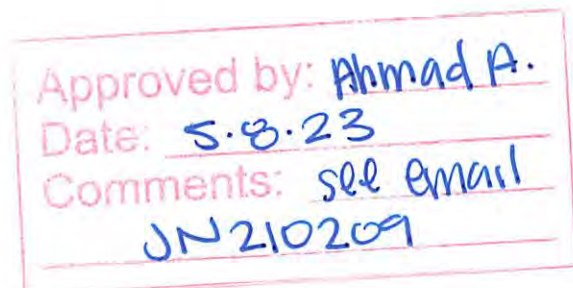 Approved by: Ahmad A.
Date: 5.8.23
Comments: see email
JN210209